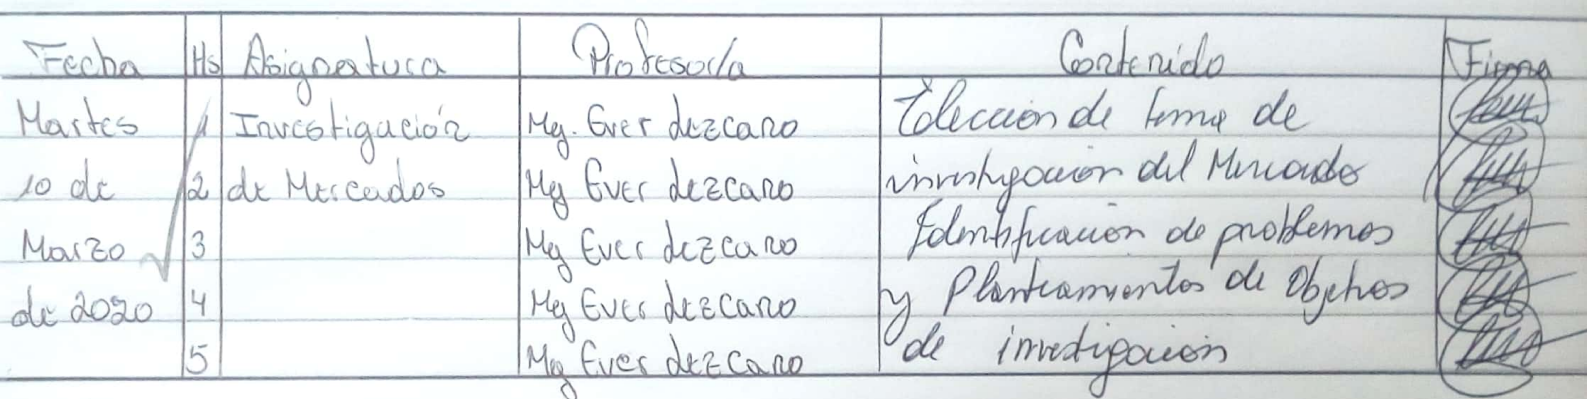 Fecha Hs Asignatura Profesor/a Contenido Firma
Martes 1 Investigación Mg. Ever dezcano Elección de tema de
10 de 2 de Mercados Mg Ever dezcano investigación del Mercado
Marzo 3 Mg Ever dezcano Identificación de problemas
de 2020 4 Mg Ever dezcano y Planteamientos de Objetivos
5 Mg Ever dezcano de investigación